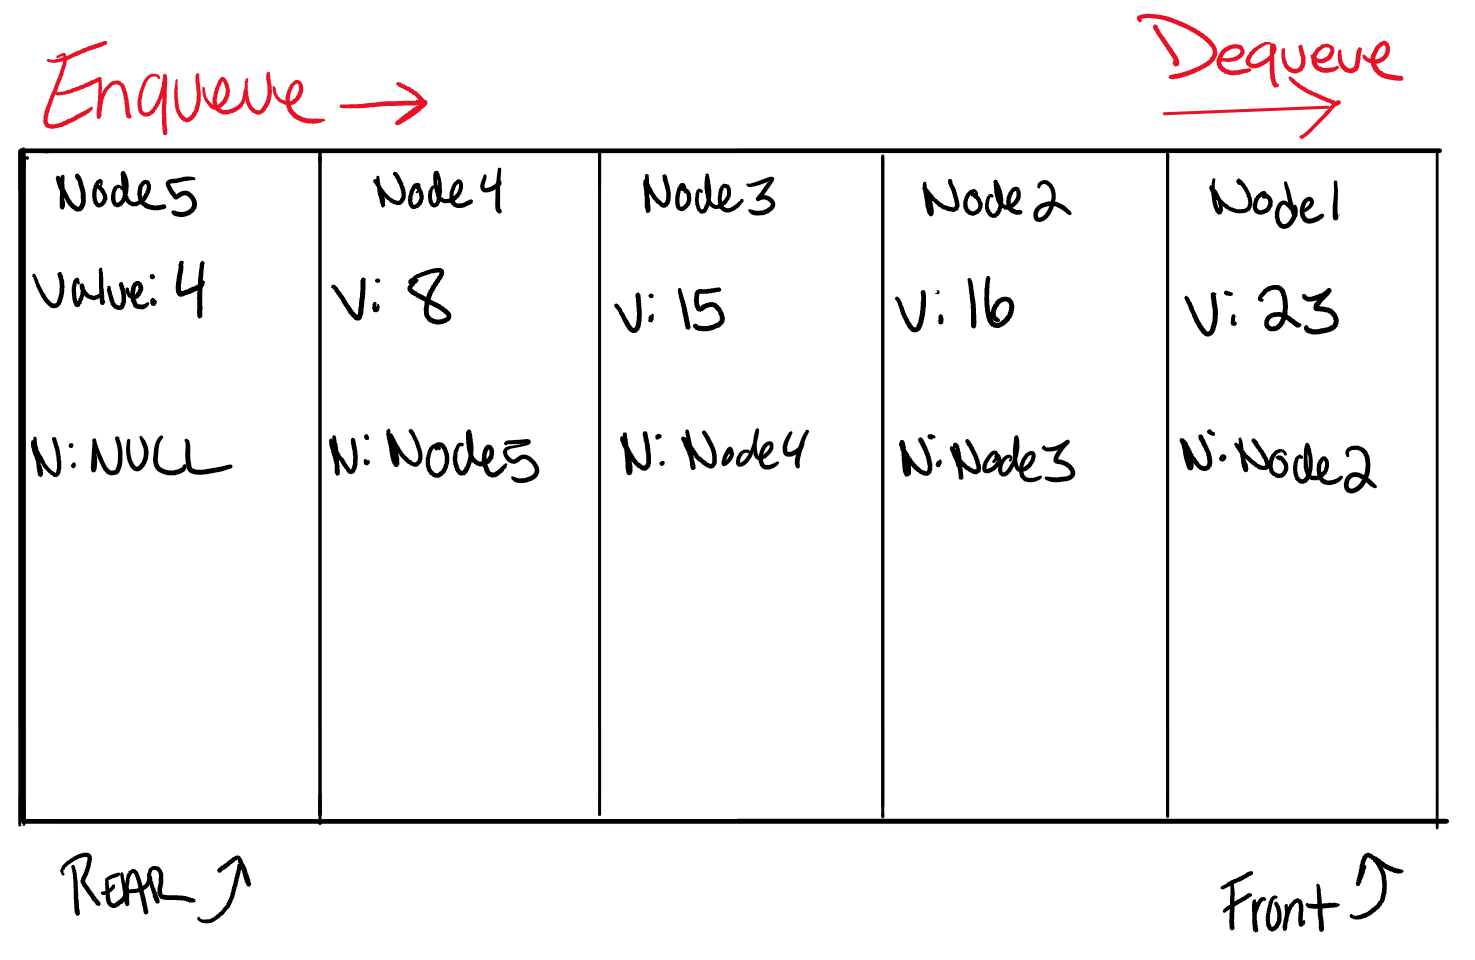 Enqueue →
Dequeue
→
Node5 Node4 Node3 Node2 Node1
Value: 4 V: 8 V: 15 V: 16 V: 23
N: NULL N: Node5 N: Node4 N: Node3 N: Node2
REAR Front